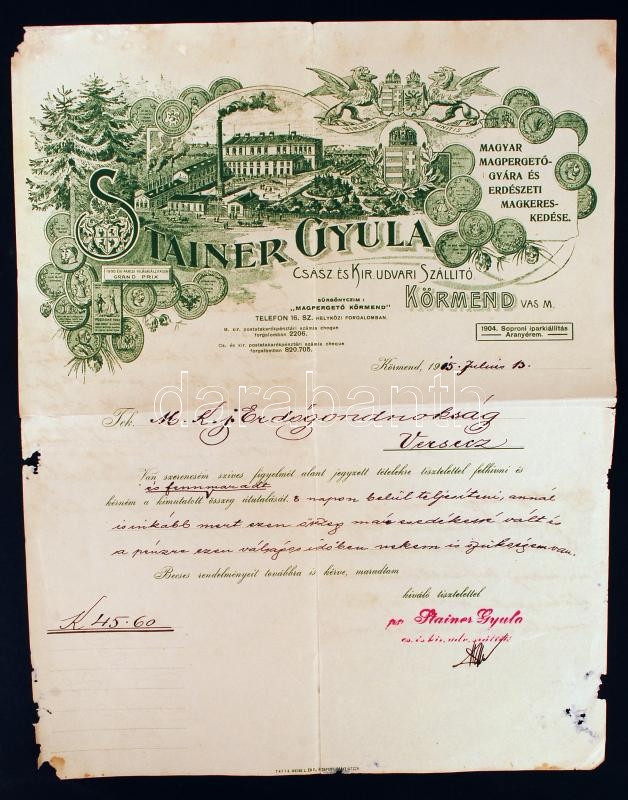 MAGYAR
MAGPERGETŐ-
GYÁRA ÉS
ERDÉSZETI
MAGKERES-
KEDÉSE.
STAINER GYULA
CSÁSZ ÉS KIR. UDVARI SZÁLLITÓ
KÖRMEND VAS M.
GRAND PRIX
SÜRGÖNYCZIM:
„MAGPERGETŐ KÖRMEND"
TELEFON 16. SZ. HELYKÖZI FORGALOMBAN.
M. kir. postatakarékpénztári számla cheque
forgalomban 2206.
Cs. és kir. postatakarékpénztári számla cheque
forgalomban 820.705.
1904. Soproni iparkiállítás
Aranyérem.
Körmend, 1915. Julius 13.
darabanth
Tek. M. Kir. Erdőgondnokság
Versecz
Van szerencsém szives figyelmét alant jegyzett tételekre tisztelettel felhivni és
és fennmaradt
kérném a kimutatott összeg átutalását. 8 napon belül teljesíteni, annál
is inkább mert ezen összeg már esedékessé vált és
a pénzre ezen válságos időkben nekem is szükségem van.
Becses rendelményeit továbbra is kérve, maradtam
kiváló tisztelettel
K 45.60
pr Stainer Gyula
cs. és kir. udv. szállító